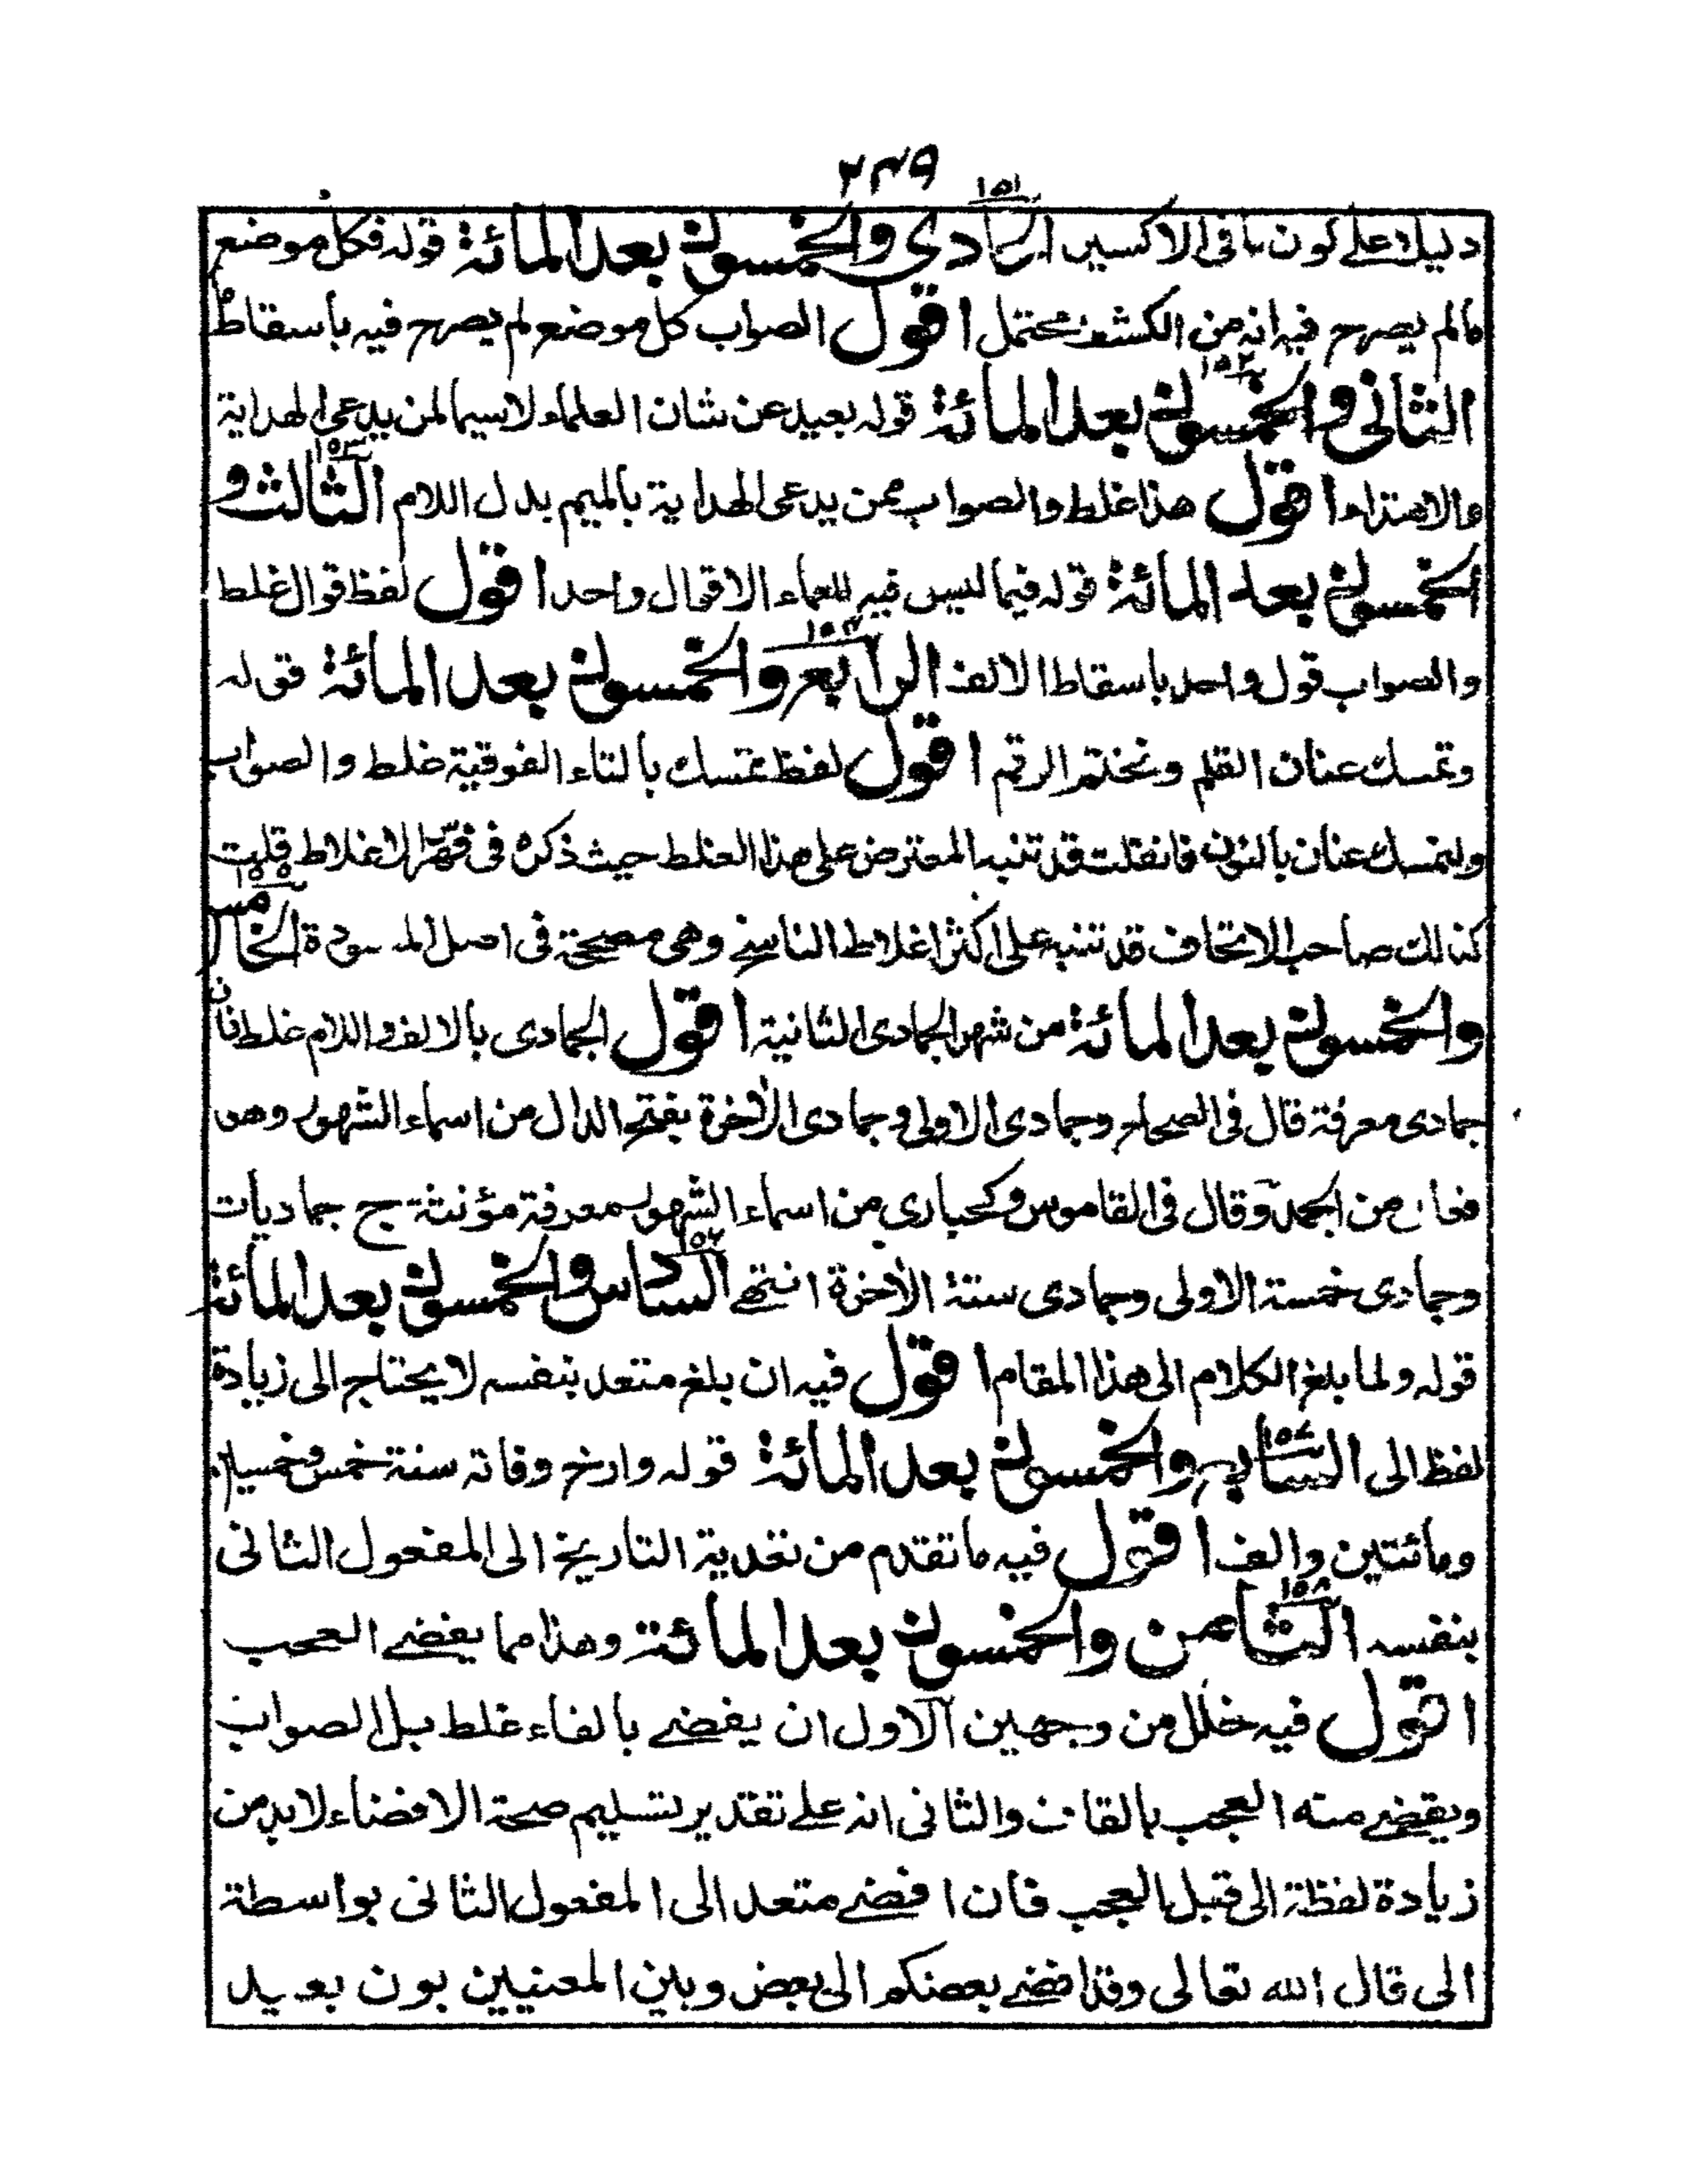 ٢٣٩
١٥١
دليلا على كون ما فى الاكسير الحادى والخمسون بعد المائة قوله فكل موضع
ما لم يصرح فيه انه من الكشف محتمل اقول الصواب كل موضع لم يصرح فيه باسقاط
١٥٢
الثانى والخمسون بعد المائة قوله بعيد عن شان العلماء لاسيما لمن يدعى الهداية
١٥٣
والاهتداء اقول هذا غلط والصواب ممن يدعى الهداية بالميم بدل اللام الثالث و
الخمسون بعد المائة قوله فيما ليس فيه للعلماء الا قوال واحد اقول لفظ قوال غلط
١٥٤
والصواب قول واحد باسقاط الالف الرابع والخمسون بعد المائة قوله
وتمسك عنان القلم ونختم الرقم اقول لفظ تمسك بالتاء الفوقية غلط والصواب
ونمسك عنان بالنون فانقلت قد تنبه المعترض على هذا الغلط حيث ذكره فى الاغلاط قلت
١٥٥
كذالك صاحب الاتحاف قد تنبه على اكثر اغلاط الناسخ وهى مصححة فى اصل المسودة الخامس
والخمسون بعد المائة من شهر الجمادى الثانية اقول الجمادى بالالف واللام غلط فان
جمادى معرفة قال فى الصحاح وجمادى الاولى وجمادى الاخرة بفتح الدال من اسماء الشهور وهو
فعالى من الجمد وقال فى القاموس وكحبارى من اسماء الشهور معرفة مؤنثة ج جماديات
١٥٦
وجمادى خمسة الاولى وجمادى ستة الآخرة انتهے السادس والخمسون بعد المائة
قوله ولما بلغ الكلام الى هذا المقام اقول فيه ان بلغ متعد بنفسه لا يحتاج الى زيادة
١٥٧
لفظ الى السابع والخمسون بعد المائة قوله وارخ وفاته سنة خمس وخمسين
ومائتين والف اقول فيه ما تقدم من تعدية التاريخ الى المفعول الثانى
١٥٨
بنفسه الثامن والخمسون بعد المائة وهذا مما يفضے العجب
اقول فيه خلل من وجهين الاول ان يفضے بالفاء غلط بل الصواب
ويقضے منه العجب بالقاف والثانى انه على تقدير تسليم صحة الافضاء لابد من
زيادة لفظة الى قبل العجب فان افضے متعد الى المفعول الثانى بواسطة
الى قال الله تعالى وقد افضے بعضكم الى بعض وبين المعنيين بون بعيد